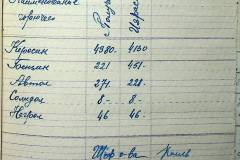 Наименование
горючего
Получ
Израс
Керосин 4380.- 4130
Бензин 221 451.-
Автол 271.- 228.-
Солидол 8.- 8.-
Нигрол 46 46.-